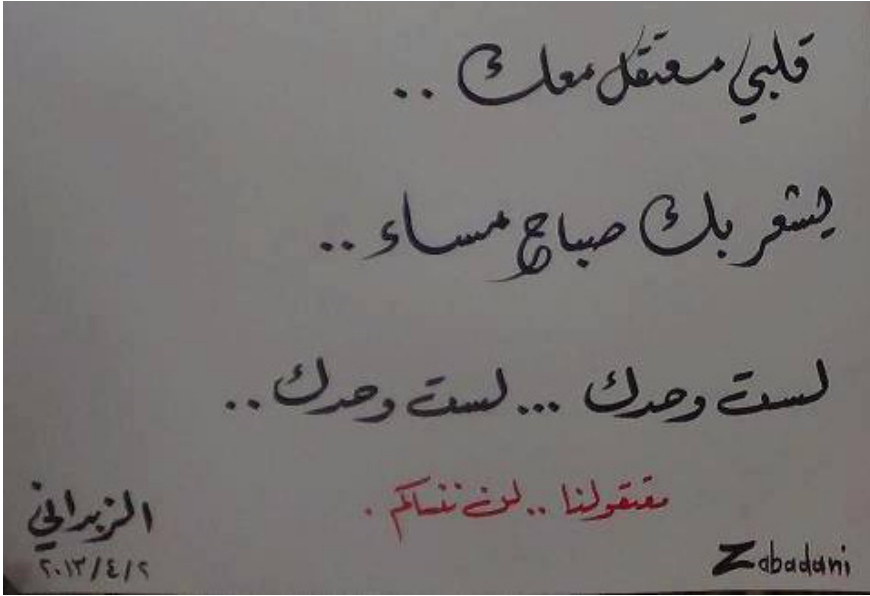 قلبي معتقل معك ..
يشعر بك صباح مساء ..
لست وحدك ... لست وحدك ..
معتقولنا .. لن ننساكم .
الزبداني
٢٠١٣/٤/٢
Zabadani